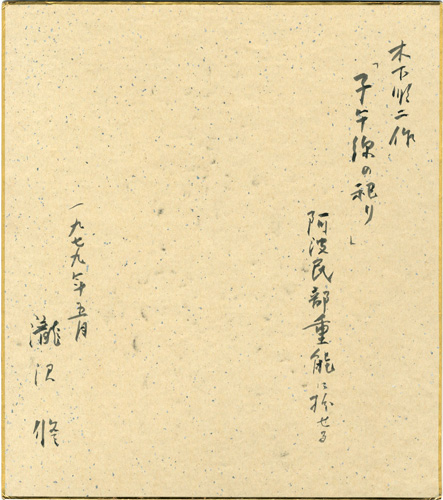 木下順二作
「子午線の祀り」
阿波民部重能に扮せる
一九七九年五月
瀧沢修